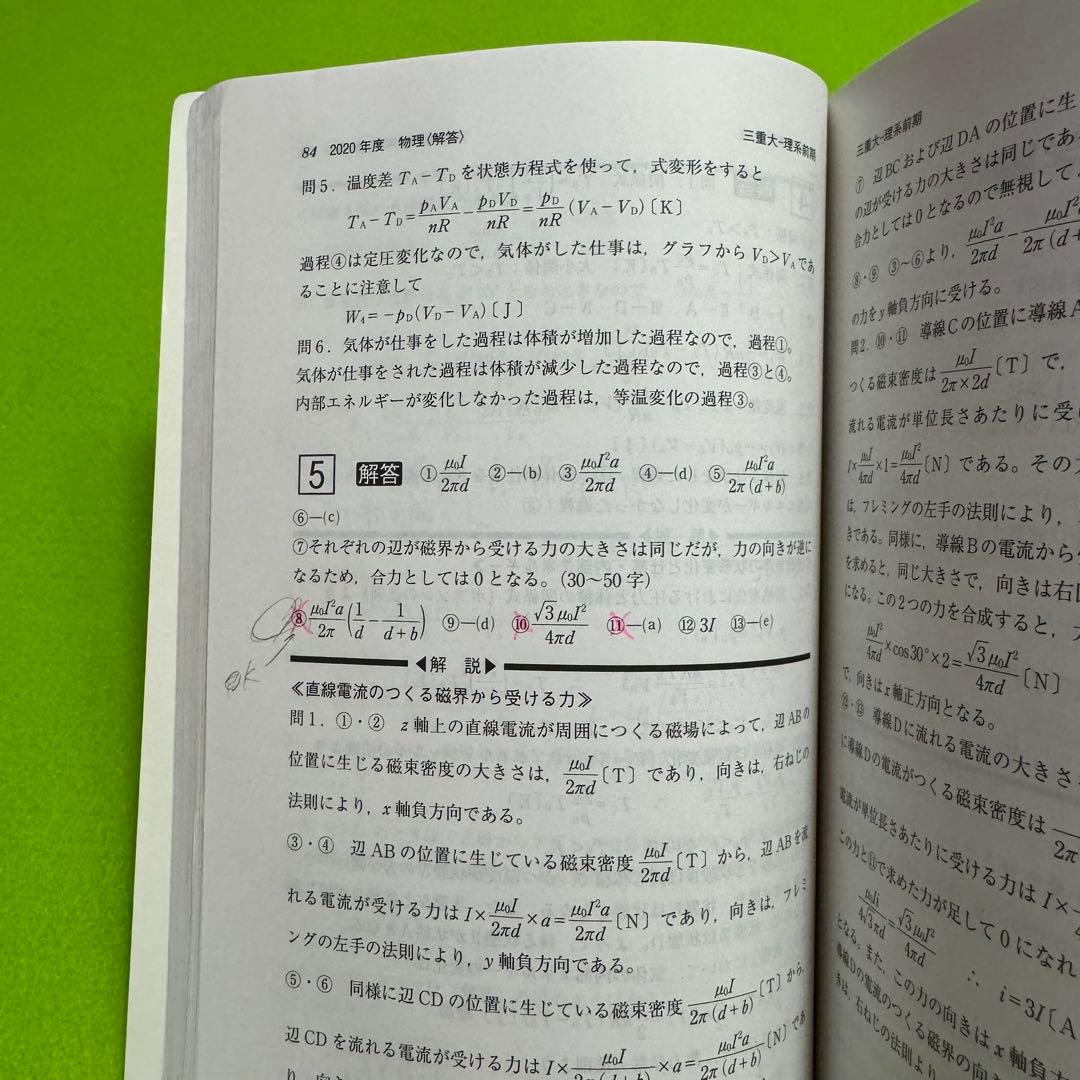 84 2020年度 物理〈解答〉 三重大-理系前期
問5. 温度差 T_A－T_D を状態方程式を使って，式変形をすると
T_A－T_D＝p_AV_A/nR－p_DV_D/nR＝p_D/nR (V_A－V_D)〔K〕
過程④は定圧変化なので，気体がした仕事は，グラフから V_D>V_A であ
ることに注意して
W_4＝－p_D(V_D－V_A)〔J〕
問6. 気体が仕事をした過程は体積が増加した過程なので，過程①。
気体が仕事をされた過程は体積が減少した過程なので，過程③と④。
内部エネルギーが変化しなかった過程は，等温変化の過程③。
5 解答 ①μ₀I/2πd ②―(b) ③μ₀I²a/2πd ④―(d) ⑤μ₀I²a/2π(d+b)
⑥―(c)
⑦それぞれの辺が磁界から受ける力の大きさは同じだが，力の向きが逆に
なるため，合力としては0となる。(30～50字)
⑧μ₀I²a/2π(1/d－1/(d+b)) ⑨―(d) ⑩√3μ₀I²/4πd ⑪―(a) ⑫3I ⑬―(e)
ok
◀解 説▶
≪直線電流のつくる磁界から受ける力≫
問1. ①・② z軸上の直線電流が周囲につくる磁場によって，辺ABの
位置に生じる磁束密度の大きさは，μ₀I/2πd〔T〕であり，向きは，右ねじの
法則により，x軸負方向である。
③・④ 辺ABの位置に生じている磁束密度 μ₀I/2πd〔T〕から，辺ABを流
れる電流が受ける力は I×μ₀I/2πd×a＝μ₀I²a/2πd〔N〕であり，向きは，フレミ
ングの左手の法則により，y軸負方向である。
⑤・⑥ 同様に辺CDの位置に生じている磁束密度 μ₀I/2π(d+b)〔T〕から，
辺CDを流れる電流が受ける力は I×μ₀I/2π(d+b)×a＝μ₀I²a/2π(d+b)〔N〕であ
三重大-理系前期
⑦ 辺BCおよび辺DAの位置に生
の辺が受ける力の大きさは同じであ
合力としては0となるので無視して
⑧・⑨ ③～⑥より，μ₀I²a/2πd－μ₀I²a/2π(d+
の力をy軸負方向に受ける。
問2. ⑩・⑪ 導線Cの位置に導線A
つくる磁束密度は μ₀I/2π×2d〔T〕で，
流れる電流が単位長さあたりに受け
I×μ₀I/4πd×1＝μ₀I²/4πd〔N〕である。その
は，フレミングの左手の法則により，
きである。同様に，導線Bの電流から
を求めると，同じ大きさで，向きは右
になる。この2つの力を合成すると，
μ₀I²/4πd×cos30°×2＝√3μ₀I²/4πd〔N〕
で，向きはx軸正方向となる。
⑫・⑬ 導線Dに流れる電流の大きさ
に導線Dの電流がつくる磁束密度は
電流が単位長さあたりに受ける力は I×
この力と⑪で求めた力が足して0になれ
μ₀Ii/4√3πd＝√3μ₀I²/4πd ∴ i＝3I〔A
となる。また，この力の向きはx軸負方
導線Dの電流のつくる磁界の向
きは，右ねじの法則より